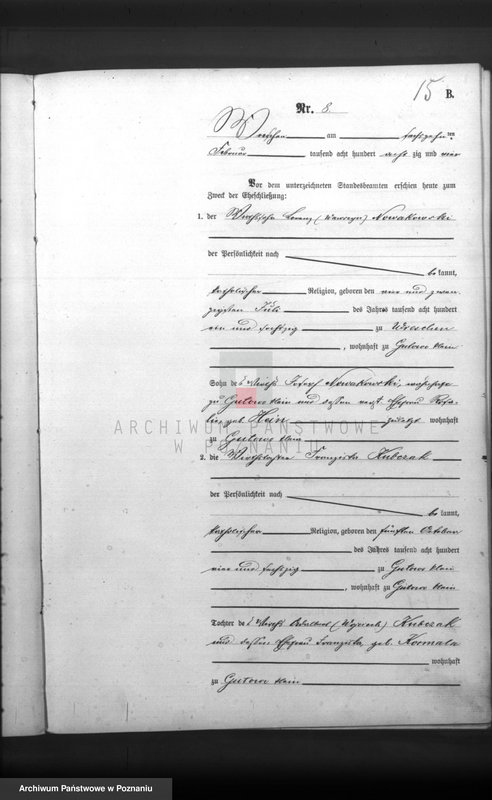 15 B.
Nr. 8
Wreschen am achtzehnten
Februar tausend acht hundert acht zig und vier
Vor dem unterzeichneten Standesbeamten erschien heute zum
Zweck der Eheschließung:
1. der Wirthssohn Lorenz (Wawrzyn) Nowakowski
der Persönlichkeit nach
be kannt,
katholischer Religion, geboren den vier und zwan
zigsten Juli des Jahres tausend acht hundert
ein und sechzig zu Wreschen
, wohnhaft zu Gutowo klein
Sohn des Wirths Josef Nowakowski,
zu Gutowo klein und dessen Ehefrau Rosa
geb. Hein zuletzt wohnhaft
zu Gutowo klein
2. die Wirthstochter Franziska Kubczak
der Persönlichkeit nach
be kannt,
katholischer Religion, geboren den fünften October
des Jahres tausend acht hundert
vier und sechzig zu Gutowo klein
, wohnhaft zu Gutowo klein
Tochter des Wirths Adalbert (Wojciech) Kubczak
und dessen Ehefrau Franziska geb. Kormala
wohnhaft
zu Gutowo klein
ARCHIWUM PAŃSTWOWE
W POZNANIU
Archiwum Państwowe w Poznaniu